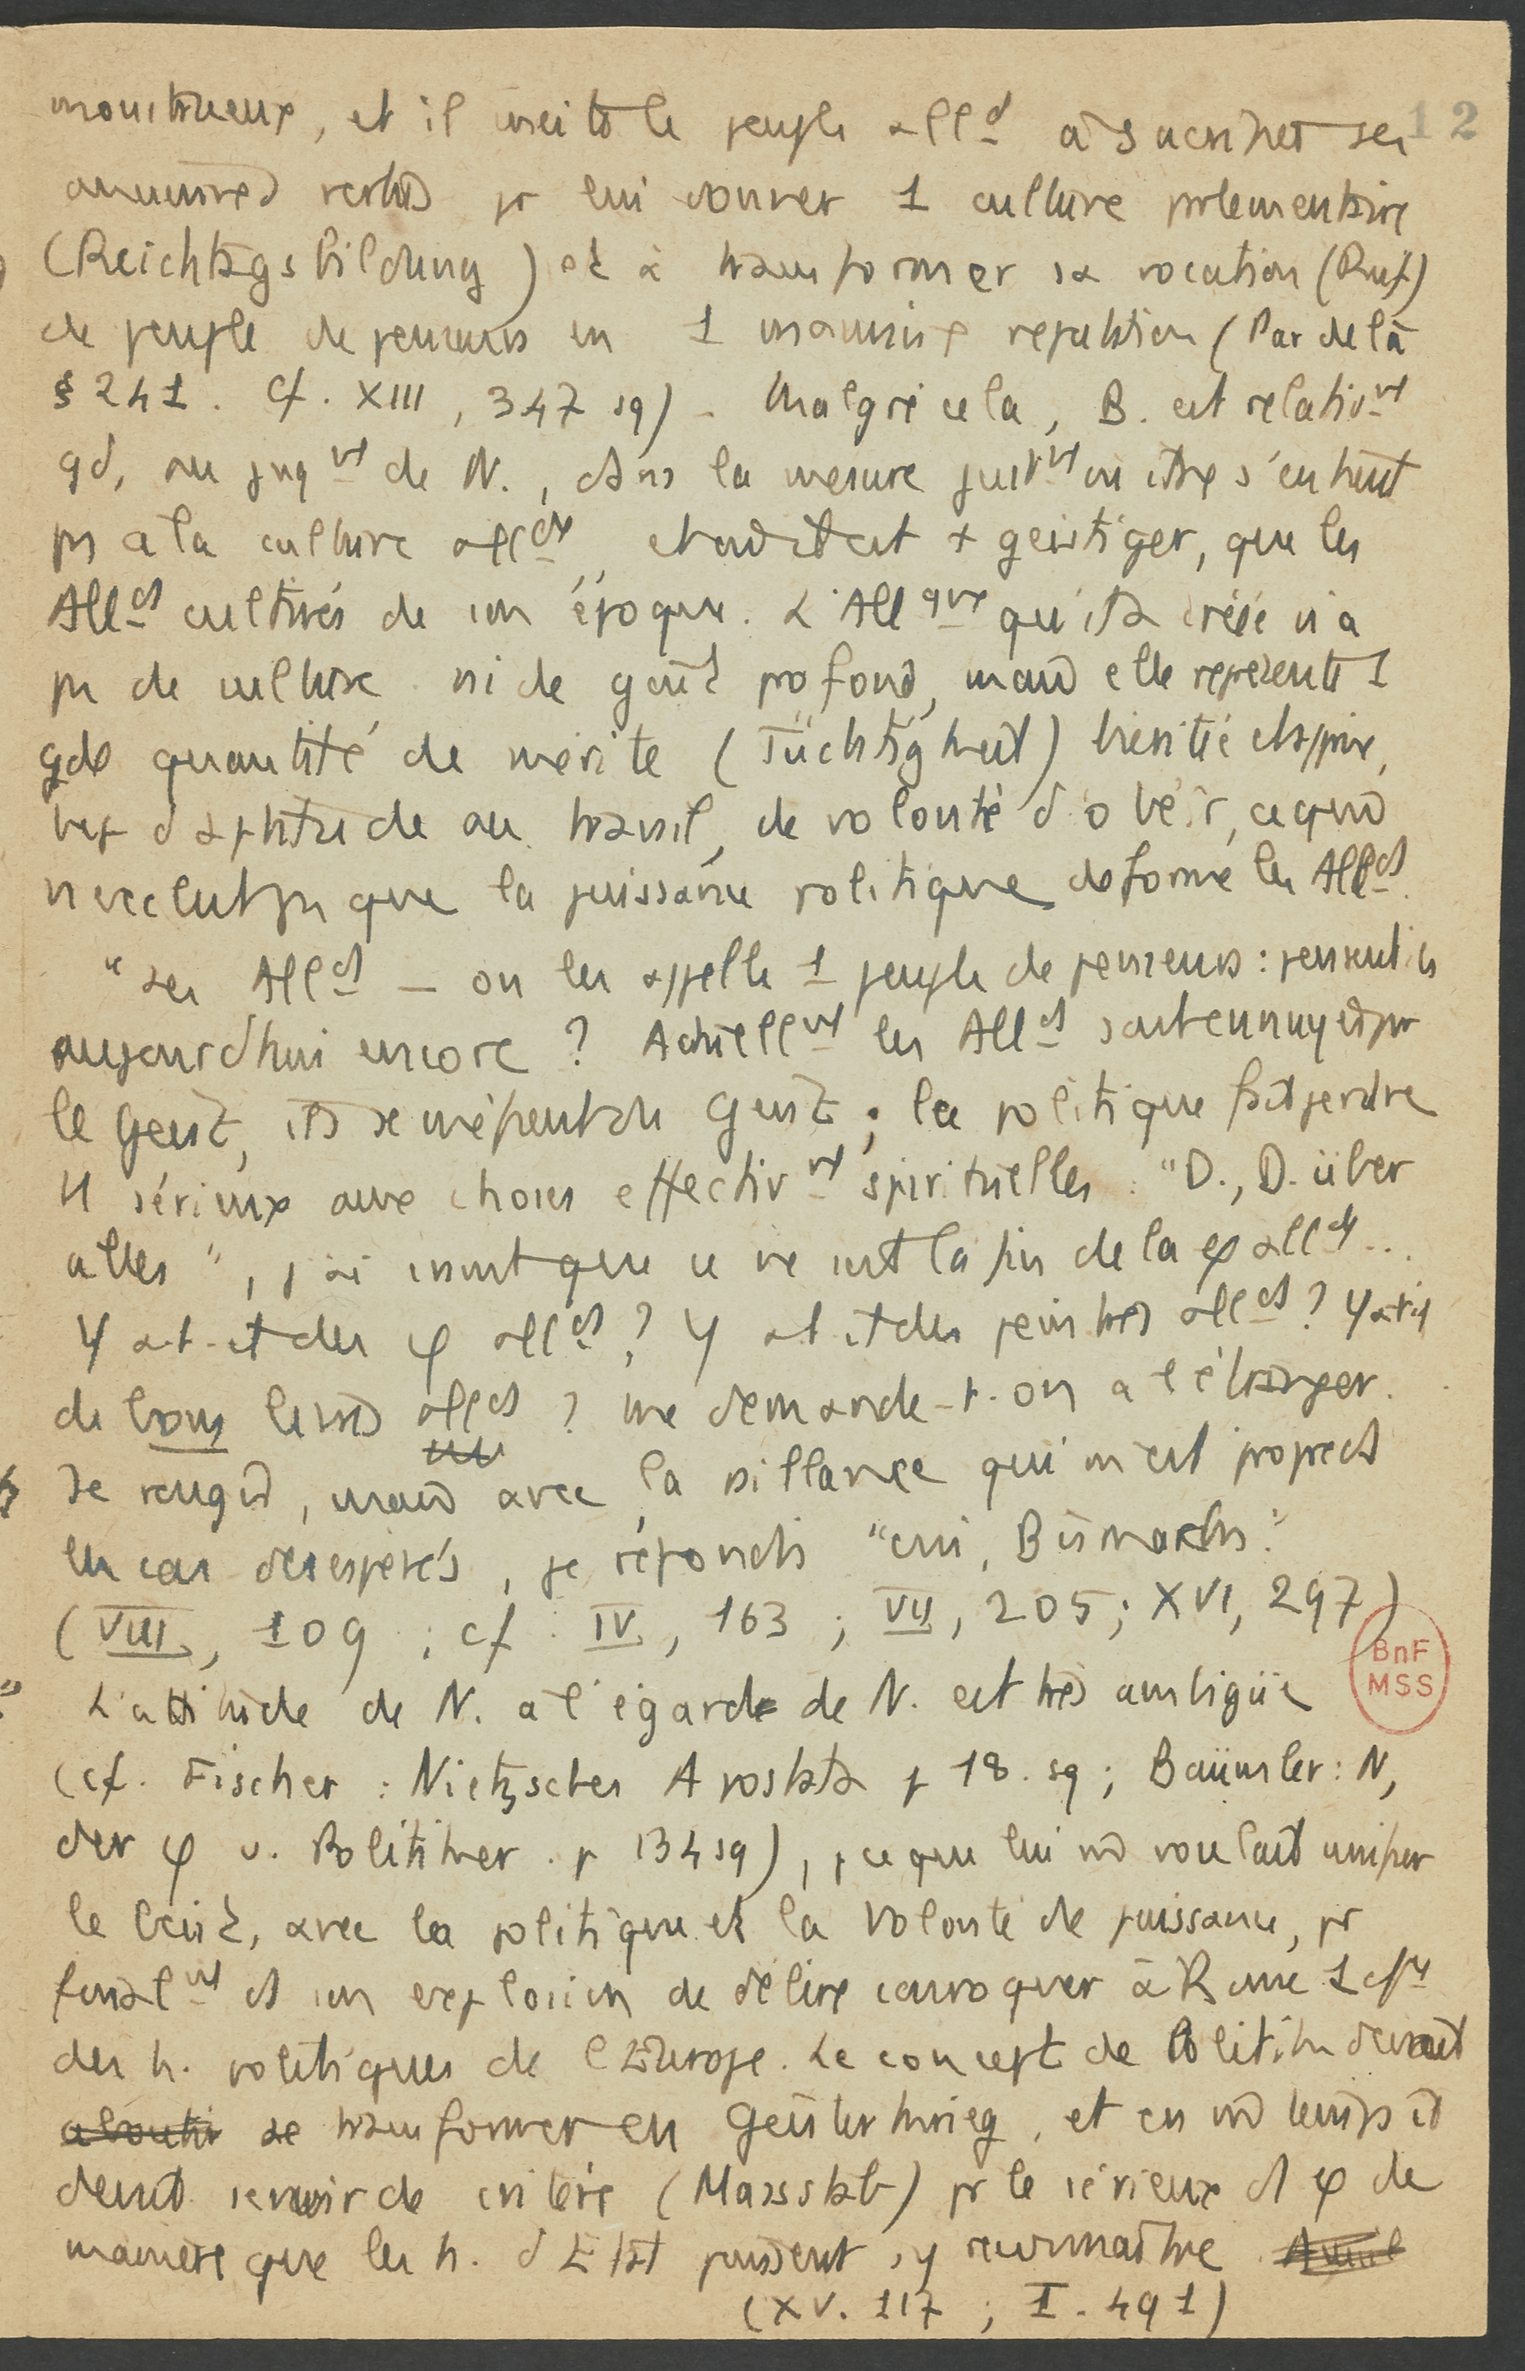 monstrueux, et il incite le peuple alld à sacrifier ses 12
anciennes vertus pr lui donner 1 culture prlementaire
(Reichtagsbildung) et à transformer sa vocation (Ruf)
de peuple de penseurs en 1 mauvaise reputation (Par delà
§ 241. Cf. XIII, 347 sq) - Malgré cela, B. est relativnt
gd, au jugnt de N., ds la mesure justnt où il ne s'entend
ps à la culture allde, et où il est + geistiger, que les
Allds cultivés de son époque. L'Allgne qu'il a créé n'a
ps de culture ni de goût profond, mais elle représente 1
gde quantité de mérite (Tüchtigkeit) héritée et apprise,
bcp d'aptitude au travail, de volonté d'obéir, ce qui
n'exclut ps que la puissance politique déforme les Allds.
"Les Allds — on les appelle 1 peuple de penseurs : pensent-ils
aujourd'hui encore ? Actuellnt les Allds sont ennuyés pr
le Geist, ils se méfient du Geist ; la politique fait perdre
le sérieux aux choses effectivnt spirituelles. "D., D. über
alles", j'ai craint que ce ne soit la fin de la φ allde..
Y a-t-il des φ allds ? Y a-t-il des peintres allds ? Y a-t-il
de bons livres allds ? me demande-t-on à l'étranger.
Je rougis, mais avec la vaillance qui m'est propre ds
les cas désespérés, je réponds "oui, Bismarck."
(VIII, 109 ; cf. IV, 163 ; VII, 205 ; XVI, 297)
L'attitude de N. à l'égard de N. est très ambigüe
(cf. Fischer : Nietzsches Apostata p 18. sq ; Baümler : N,
der φ u. Politiker. p 134 sq), pce que lui-m voulait unifier
le Geist, avec la politique et la Volonté de puissance, pr
finalnt ds son explosion de délire convoquer à Rome 1
des h. politiques de l'Europe. Le concept de Politik devrait
aboutir se transformer en Geisterkrieg, et en m temps il
devrait servir de critère (Massstab) pr le sérieux ds φ de
manière que les h. d'Etat puissent s'y reconnaître.
(XV. 117 ; I. 491)
BnF
MSS